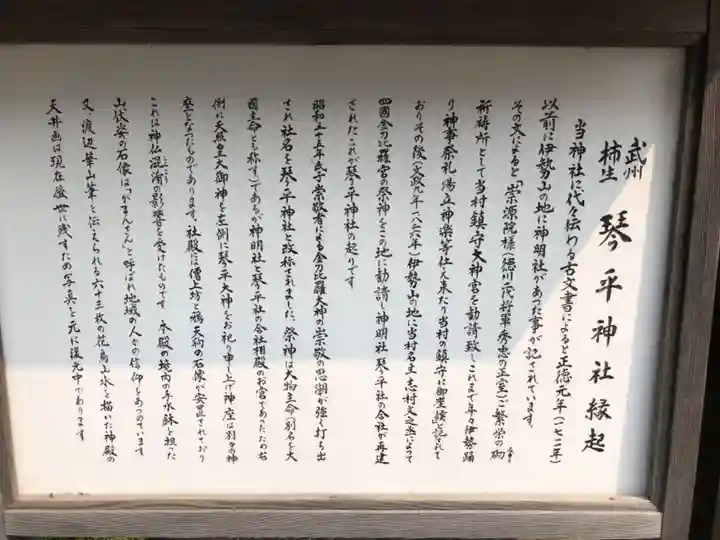 武州
柿生
琴平神社縁起
当神社に代々伝わる古文書によると正徳元年(一七一一年)
以前に伊勢山の地に神明社があった事が記されています。
その文によると「崇源院様(徳川二代将軍秀忠の正室)ご繁栄の砌
祈祷所として当村鎮守大神宮を勧請致しこれまで年々伊勢踊
り神事祭礼湯立神楽等仕え来たり当村の鎮守に御座候」と記されて
おりその後文政九年(一八二六年)伊勢山の地に当村名主志村文之丞によって
四國金刀比羅宮の祭神をこの地に勧請し神明社琴平社の合社が再建
されたこれが琴平神社の起りです
昭和三十五年氏子崇敬者による金刀比羅大神の崇敬の思潮が強く打ち出
され社名を琴平神社と改称されました。祭神は大物主命(別名を大
國主命とも称す)であるが神明社と琴平社の合社相殿のお宮であったため右
側に天照皇大御神を左側に琴平大神をお祀り申し上げ神座は別々の神
座となったものであります。社殿には僧上坊と鴉天狗の石像が安置されており
これは神仏混淆の影響を受けたものです 本殿の境内の手水鉢を担った
山伏姿の石像は、がまんさんと呼ばれ地域の人々の信仰をあつめています
又、渡辺華山筆と伝えられる六十三枚の花鳥山水を描いた神殿の
天井画は現在後世に残すため写真を元に復元中であります